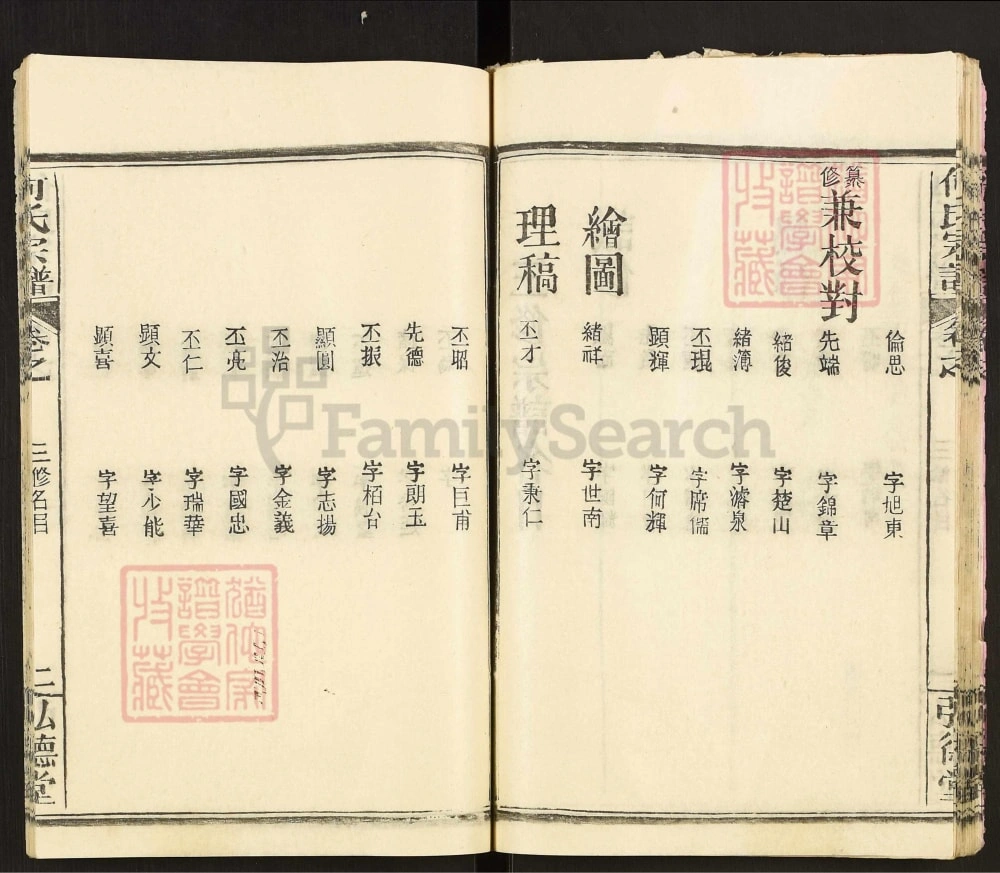 倫思 字旭東
纂修兼校對
先端 字錦章
緒俊 字楚山
緒薄 字濬泉
丕琨 字席儒
顯輝 字何輝
繪圖
緒祥 字世南
理稿
丕才 字秉仁
丕昭 字巨甫
先德 字朗玉
丕振 字栢台
顯圓 字志揚
丕治 字金義
丕亮 字國忠
丕仁 字瑞華
顯文 字少能
顯喜 字望喜
何氏宗譜
卷之一
三修名目
二
弘德堂
FamilySearch
譜學會
收藏